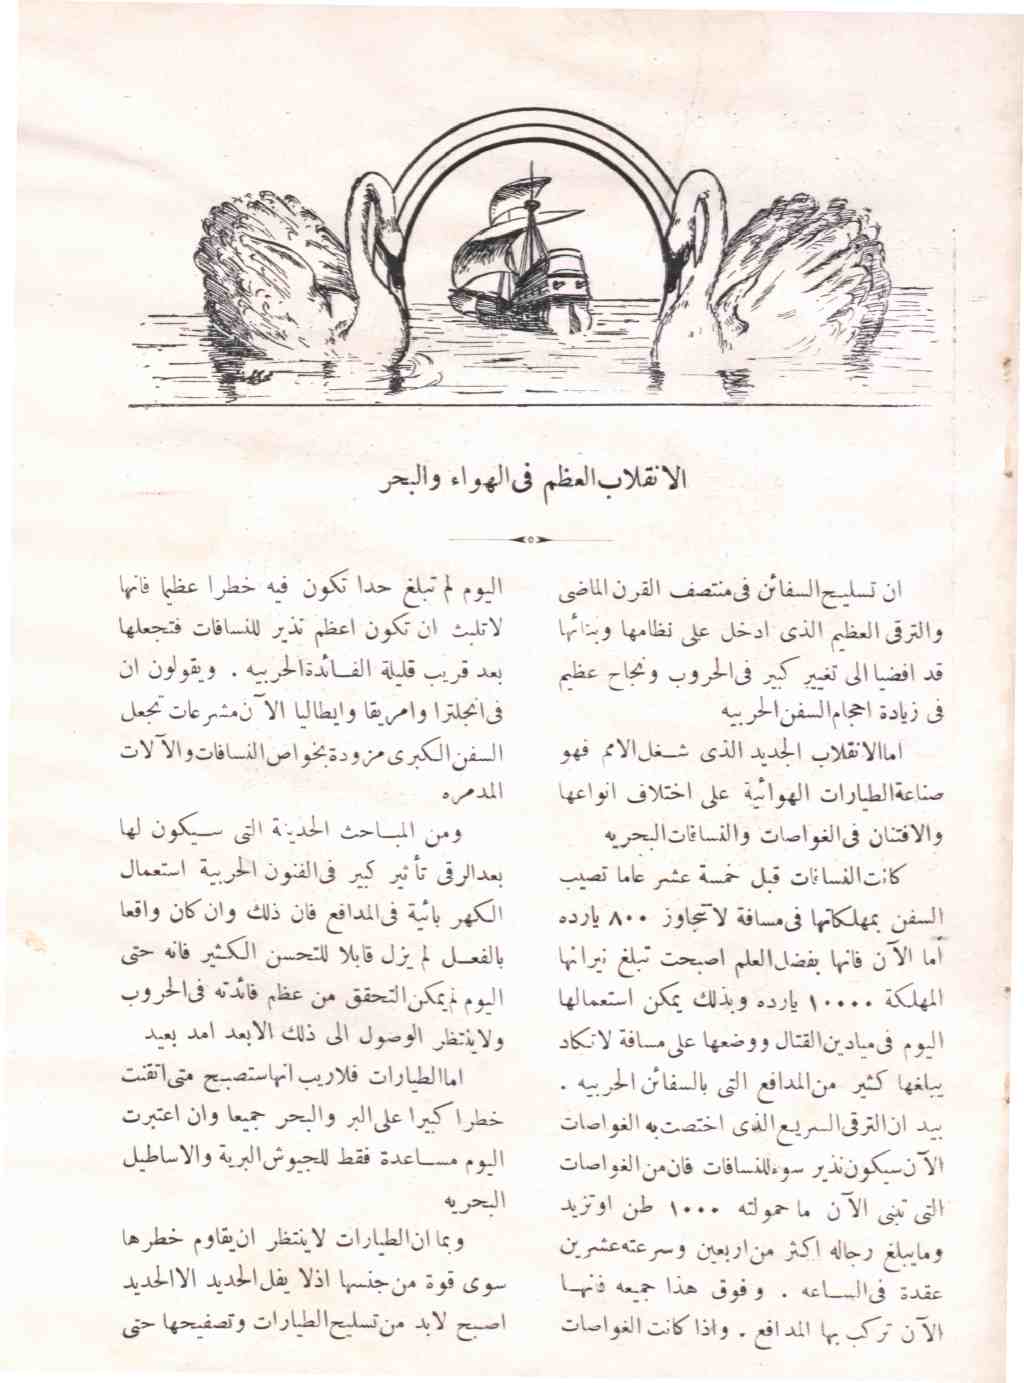 الانقلاب العظم فى الهواء والبحر
ان تسليح السفائن فى منتصف القرن الماضى
والترقى العظيم الذى ادخل على نظامها وبنائها
قد افضيا الى تغيير كبير فى الحروب ونجاح عظيم
فى زيادة احجام السفن الحربيه
اما الانقلاب الجديد الذى شغل الامم فهو
صناعة الطيارات الهوائية على اختلاف انواعها
والافتنان فى الغواصات والنسافات البحريه
كانت النسافات قبل خمسة عشر عاما تصيب
السفن بمهلكاتها فى مسافة لا تتجاوز ٨٠٠ يارده
أما الآن فانها بفضل العلم اصبحت تبلغ نيرانها
المهلكة ١٠٠٠٠ يارده وبذلك يمكن استعمالها
اليوم فى ميادين القتال ووضعها على مسافة لا تكاد
يبلغها كثير من المدافع التى بالسفائن الحربيه .
بيد ان الترقى السريع الذى اختصت به الغواصات
الآن سيكون نذير سوء للنسافات فان من الغواصات
التى تبنى الآن ما حمولته ١٠٠٠ طن او تزيد
وما يبلغ رجاله اكثر من اربعين وسرعته عشرين
عقدة فى الساعه . وفوق هذا جميعه فانها
الآن تركب بها المدافع . واذا كانت الغواصات
اليوم لم تبلغ حدا تكون فيه خطرا عظيما فانها
لا تلبث ان تكون اعظم نذير للنسافات فتجعلها
بعد قريب قليلة الفائدة الحربيه . ويقولون ان
فى انجلترا وامريقا وايطاليا الآن مشرعات تجعل
السفن الكبرى مزودة بخواص النسافات والآلات
المدمره
ومن المباحث الحديثة التى سيكون لها
بعد الرقى تأثير كبير فى الفنون الحربية استعمال
الكهربائية فى المدافع فان ذلك وان كان واقعا
بالفعل لم يزل قابلا للتحسن الكثير فانه حتى
اليوم لم يمكن التحقق من عظم فائدته فى الحروب
ولا ينتظر الوصول الى ذلك الا بعد امد بعيد
اما الطيارات فلاريب انها ستصبح متى اتقنت
خطرا كبيرا على البر والبحر جميعا وان اعتبرت
اليوم مساعدة فقط للجيوش البرية والاساطيل
البحريه
وبما ان الطيارات لا ينتظر ان يقاوم خطرها
سوى قوة من جنسها اذ لا يفل الحديد الا الحديد
اصبح لابد من تسليح الطيارات وتصفيحها حتى